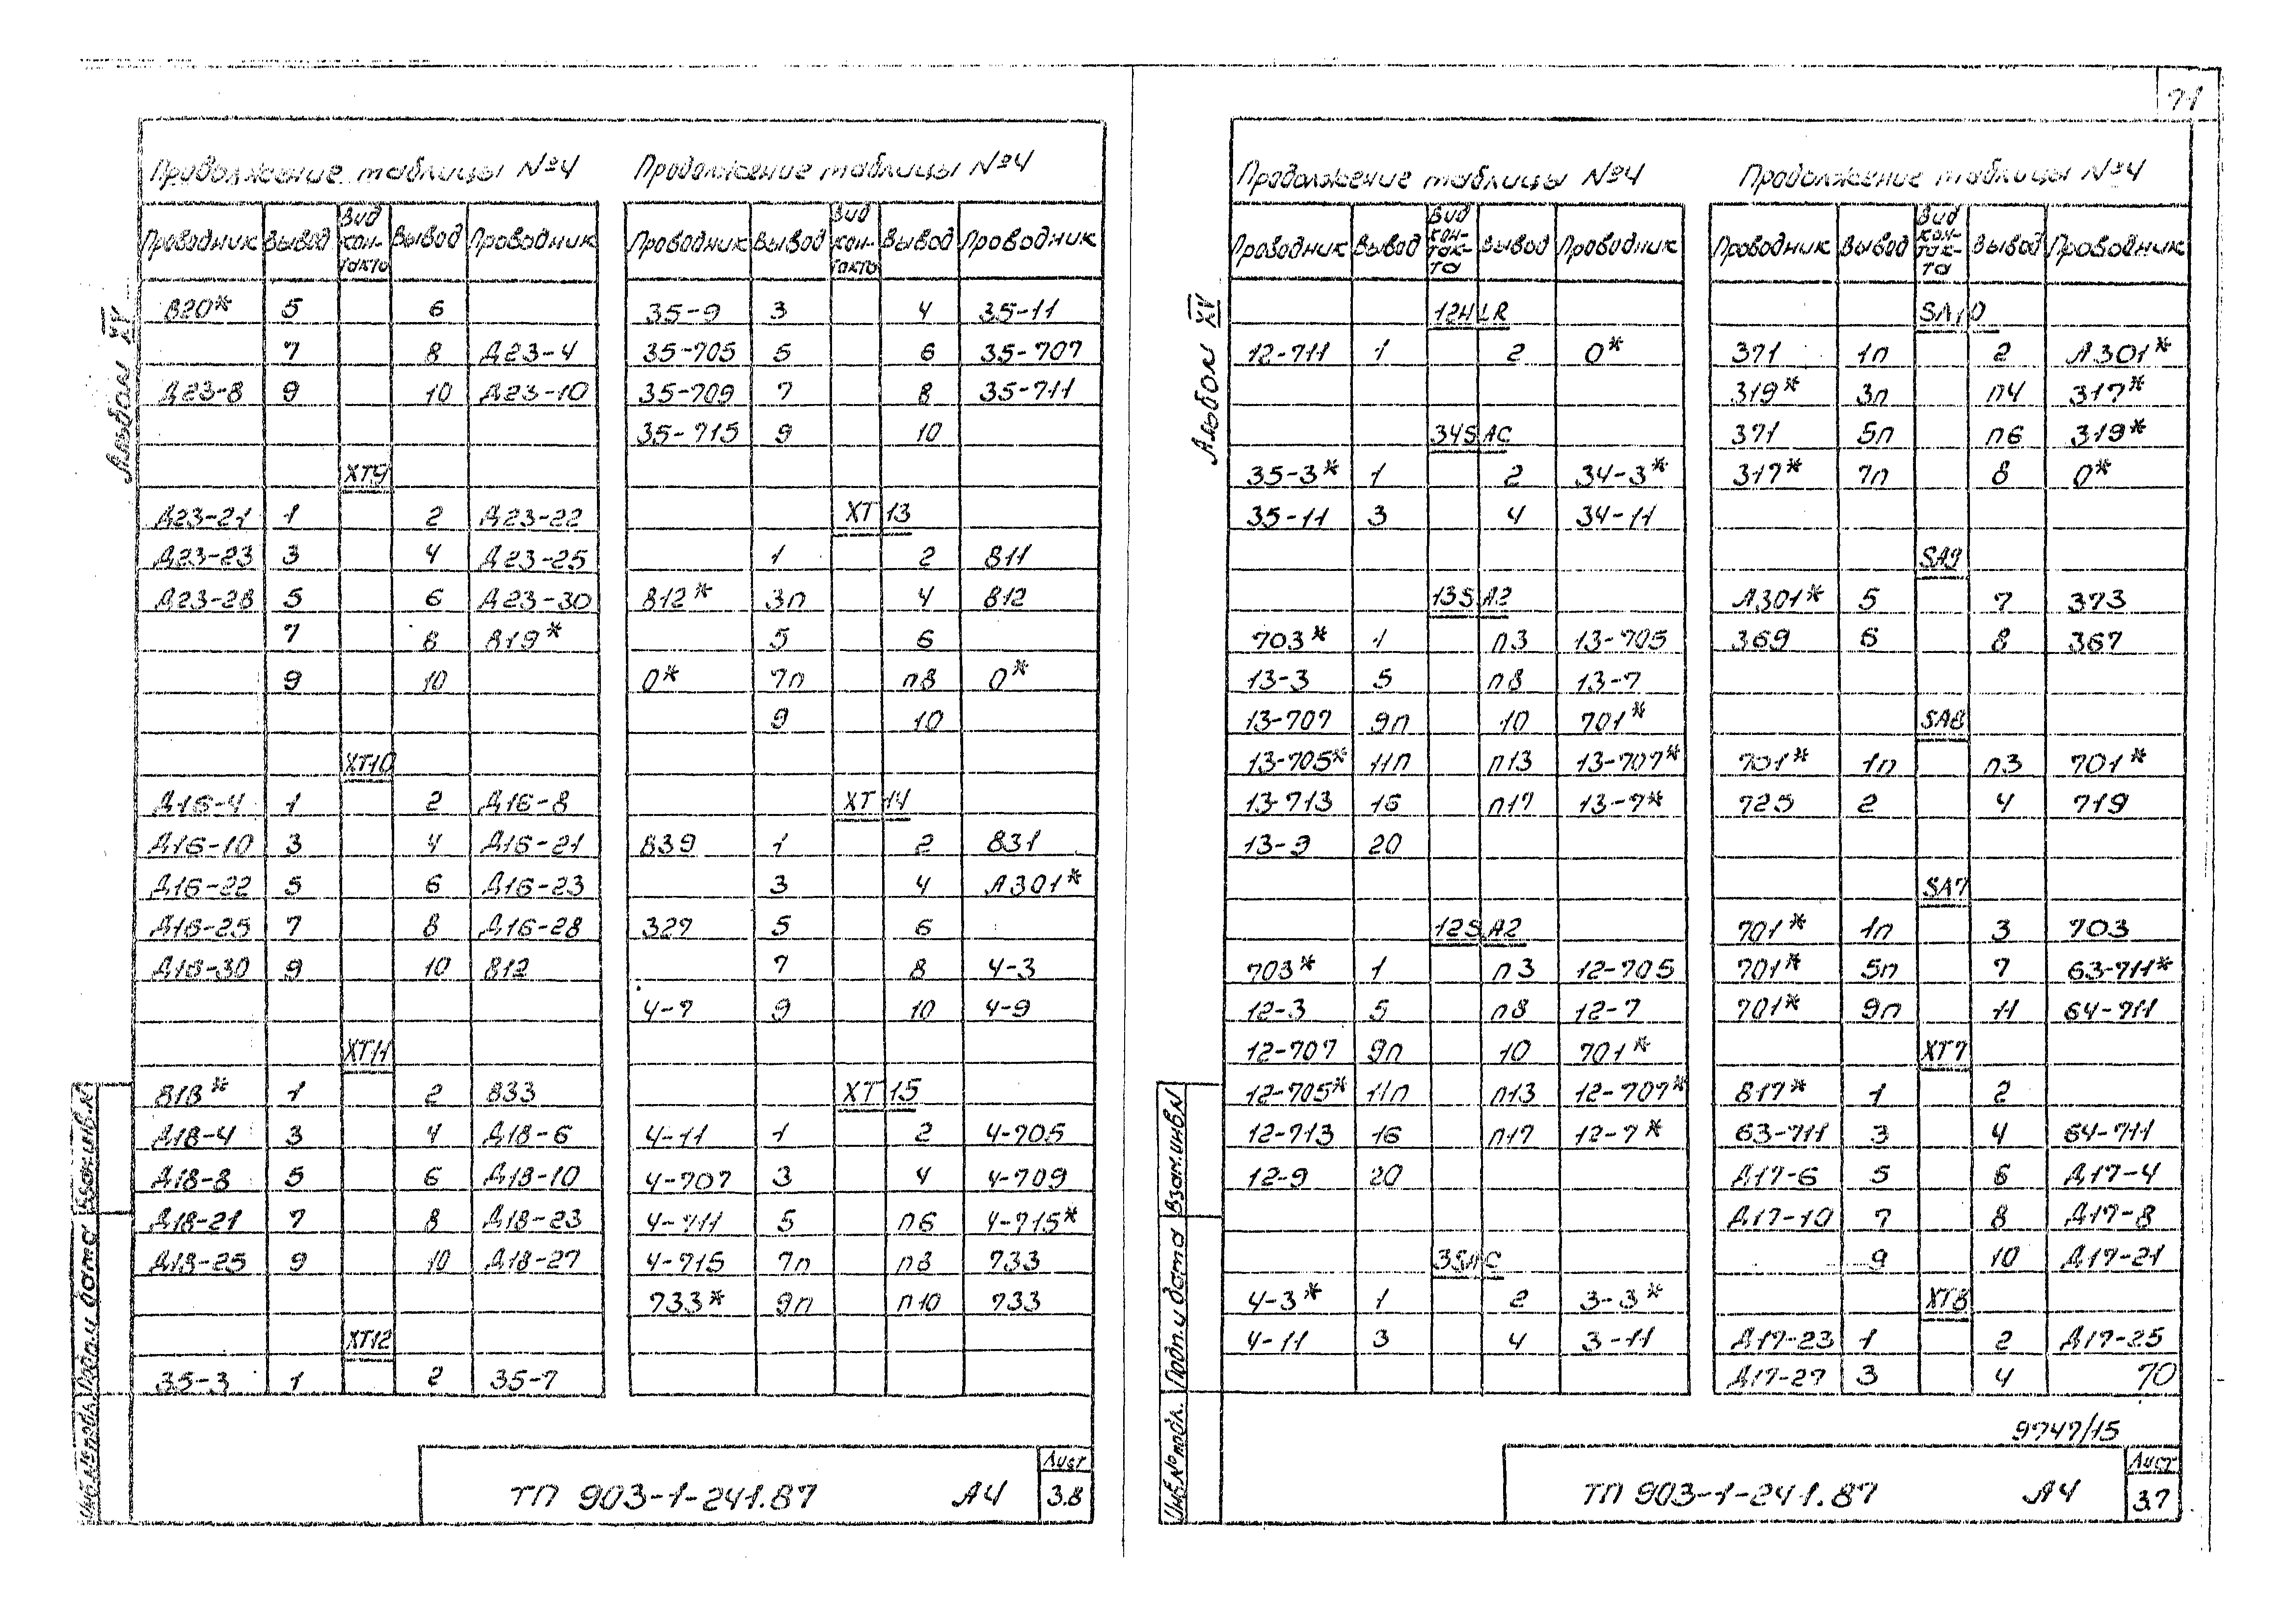 71
Альбом XV
Продолжение таблицы №4
Проводник Вывод Вид кон-такта Вывод Проводник
820* 5 6
7 8 Д23-4
Д23-8 9 10 Д23-10
XT9
Д23-21 1 2 Д23-22
Д23-23 3 4 Д23-25
Д23-28 5 6 Д23-30
7 8 819*
9 10
XT10
Д16-4 1 2 Д16-8
Д16-10 3 4 Д16-21
Д16-22 5 6 Д16-23
Д16-25 7 8 Д16-28
Д16-30 9 10 812
XT11
818* 1 2 833
Д18-4 3 4 Д18-6
Д18-8 5 6 Д18-10
Д18-21 7 8 Д18-23
Д18-25 9 10 Д18-27
XT12
35-3 1 2 35-7
Продолжение таблицы №4
Проводник Вывод Вид кон-такта Вывод Проводник
35-9 3 4 35-11
35-705 5 6 35-707
35-709 7 8 35-711
35-715 9 10
XT13
1 2 811
812* 3п 4 812
5 6
0* 7п п8 0*
9 10
XT14
839 1 2 831
3 4 Л301*
327 5 6
7 8 4-3
4-7 9 10 4-9
XT15
4-11 1 2 4-705
4-707 3 4 4-709
4-711 5 п6 4-715*
4-715 7п п8 733
733* 9п п10 733
Взам.инв.N
Подп.и дата
Инв.№подл.
ТП 903-1-241.87 А4
Лист
3.8
Альбом XV
Продолжение таблицы №4
Проводник Вывод Вид кон-так-та Вывод Проводник
12HLR
12-711 1 2 0*
34SAC
35-3* 1 2 34-3*
35-11 3 4 34-11
13SA2
703* 1 п3 13-705
13-3 5 п8 13-7
13-707 9п 10 701*
13-705* 11п п13 13-707*
13-713 16 п17 13-7*
13-9 20
12SA2
703* 1 п3 12-705
12-3 5 п8 12-7
12-707 9п 10 701*
12-705* 11п п13 12-707*
12-713 16 п17 12-7*
12-9 20
3SAC
4-3* 1 2 3-3*
4-11 3 4 3-11
Продолжение таблицы №4
Проводник Вывод Вид кон-так-та Вывод Проводник
SA10
371 1п 2 Л301*
319* 3п п4 317*
371 5п п6 319*
317* 7п 8 0*
SA9
Л301* 5 7 373
369 6 8 367
SA8
701* 1п п3 701*
725 2 4 719
SA7
701* 1п 3 703
701* 5п 7 63-711*
701* 9п 11 64-711
XT7
817* 1 2
63-711 3 4 64-711
Д17-6 5 6 Д17-4
Д17-10 7 8 Д17-8
9 10 Д17-21
XT8
Д17-23 1 2 Д17-25
Д17-27 3 4 70
9747/15
Взам.инв.N
Подп.и дата
Инв.№подл.
ТП 903-1-241.87 А4
Лист
3.7